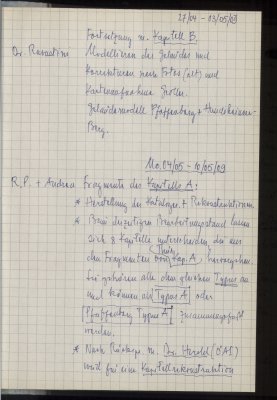 27/04 - 03/05/09
Fortsetzung m. Kapitell B.
Modellieren des Geländes und
Korrekturen nach Fotos (alt) und
Geländemodell Pfaffenberg + Hundsheimer
Berg.
Mo. 04/05 - 10/05/09
R.P. + Andrea Fragmente des Kapitells A:
* Herstellung der Kataloge + Rekonstruktionen
* Beim derzeitigen Bearbeitungsstand lassen
sich 8 Kapitelle unterscheiden, die aus
den Fragmenten von Kap. A hervorgehen
gehören alle dem gleichen Typus an
und können als Typus A oder
Pfaffenberg Typus A zusammengefasst
werden.
* Nach Rücksp. m. Dr. Herold (ÖAI)
wird für eine Kapitellrekonstruktion